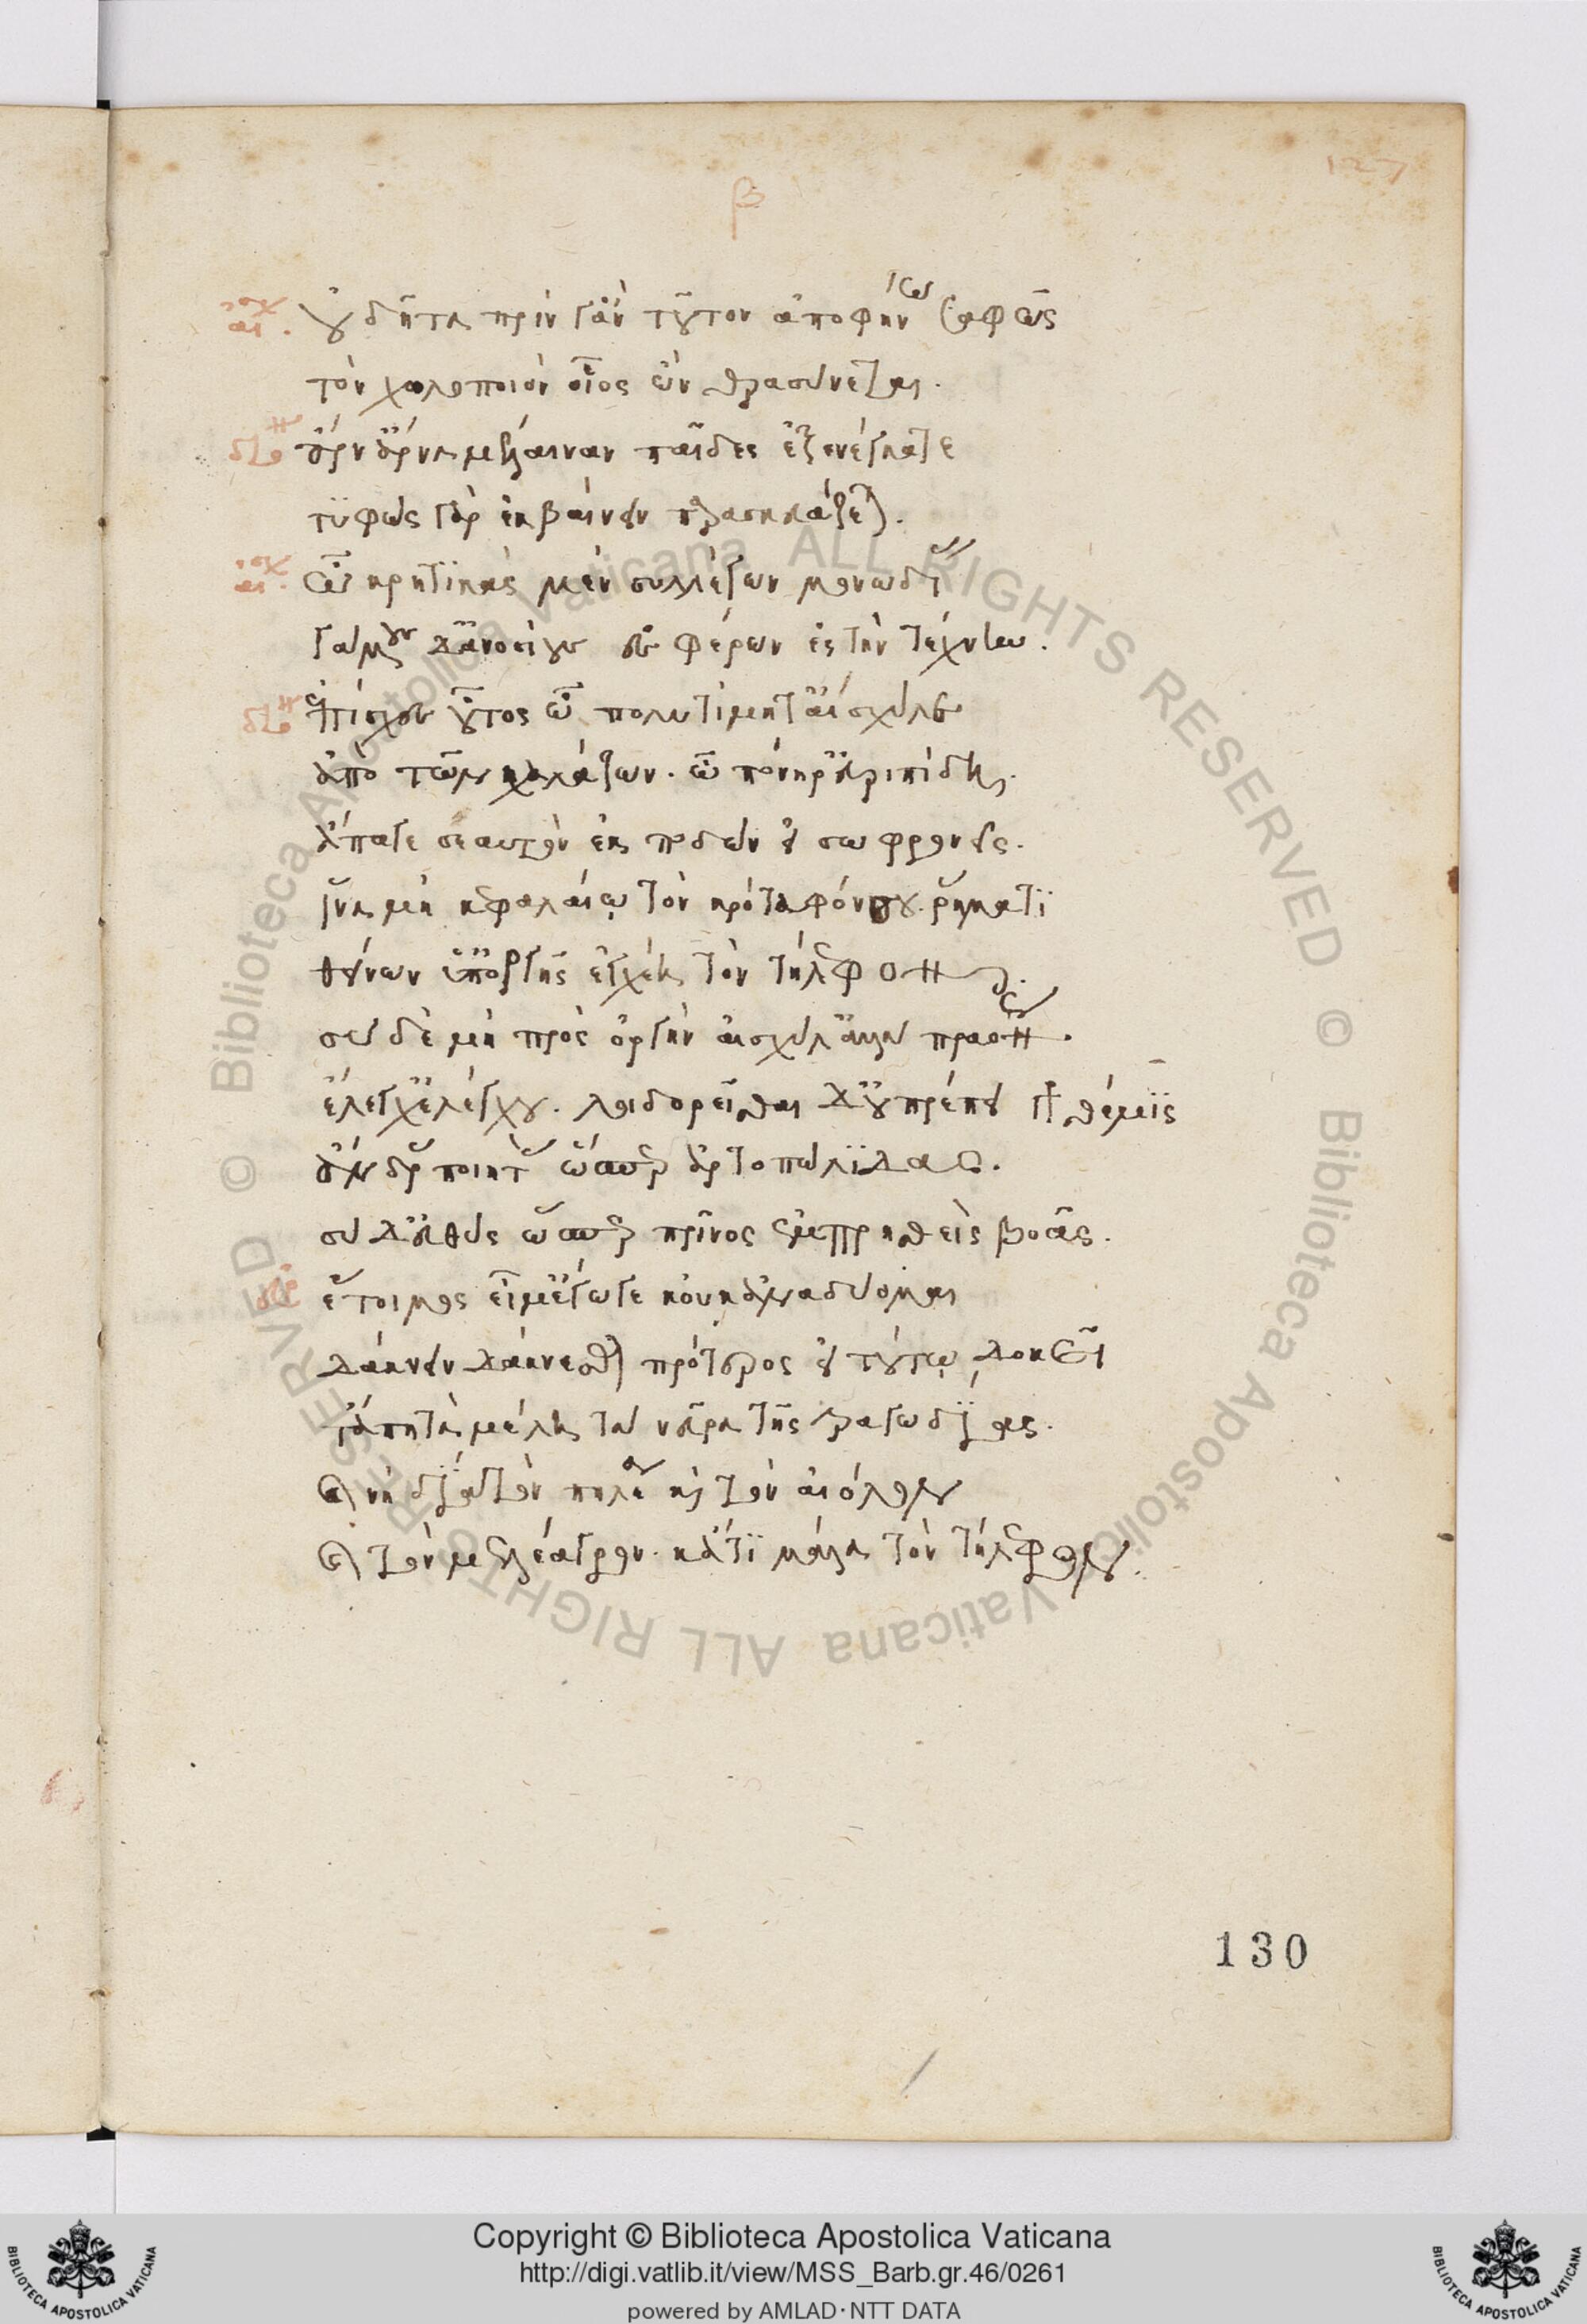 127
β
αισχ. οὐ δῆτα πρίν γ' ἂν τοῦτον ἀποφήνω σαφῶς
τὸν χωλοποιὸν οἷος ὢν θρασύνεται.
διο ἄρν' ἄρνα μέλαιναν παῖδες ἐξενέγκατε
τυφὼς γὰρ ἐκβαίνειν παρασκευάζεται.
αισχ. ὦ κρητικὰς μὲν συλλέγων μονωδίας
γάμους δ' ἀνοσίους εἰσφέρων ἐς τὴν τέχνην.
διο ἐπίσχες οὗτος ὦ πολυτίμητ' αἰσχύλε
ἀπὸ τῶν χαλαζῶν. ὦ πόνηρ' εὐριπίδη
ἄπαγε σεαυτὸν ἐκποδὼν εἰ σωφρονεῖς.
ἵνα μὴ κεφαλαίω τὸν κρόταφόν σου ῥήματι
θένων ὑπ' ὀργῆς ἐκχέη τὸν τήλεφον.
σὺ δὲ μὴ πρὸς ὀργὴν αἰσχύλ' ἀλλὰ πραόνως.
ἔλεγχ' ἐλέγχου. λοιδορεῖσθαι δ' οὐ πρέπει θέμις
ἄνδρας ποιητὰς ὥσπερ ἀρτοπώλιδας.
σὺ δ' εὐθὺς ὥσπερ πρῖνος ἐμπρησθεὶς βοᾶς.
ἕτοιμος εἰμ' ἔγωγε κοὐκ ἀναδύομαι
δάκνειν δάκνεσθαι πρότερος εἰ τούτω δοκεῖ
τἄπη τὰ μέλη τὰ νεῦρα τῆς τραγωδίας.
καὶ νὴ δία τὸν πηλέα καὶ τὸν αἰόλον
καὶ τὸν μελέαγρον. κἄτι μάλα τὸν τήλεφον.
130
Copyright © Biblioteca Apostolica Vaticana
http://digi.vatlib.it/view/MSS_Barb.gr.46/0261
powered by AMLAD·NTT DATA
BIBLIOTECA APOSTOLICA VATICANA
BIBLIOTECA APOSTOLICA VATICANA
© Biblioteca Apostolica Vaticana ALL RIGHTS RESERVED © Biblioteca Apostolica Vaticana ALL RIGHTS RESERVED